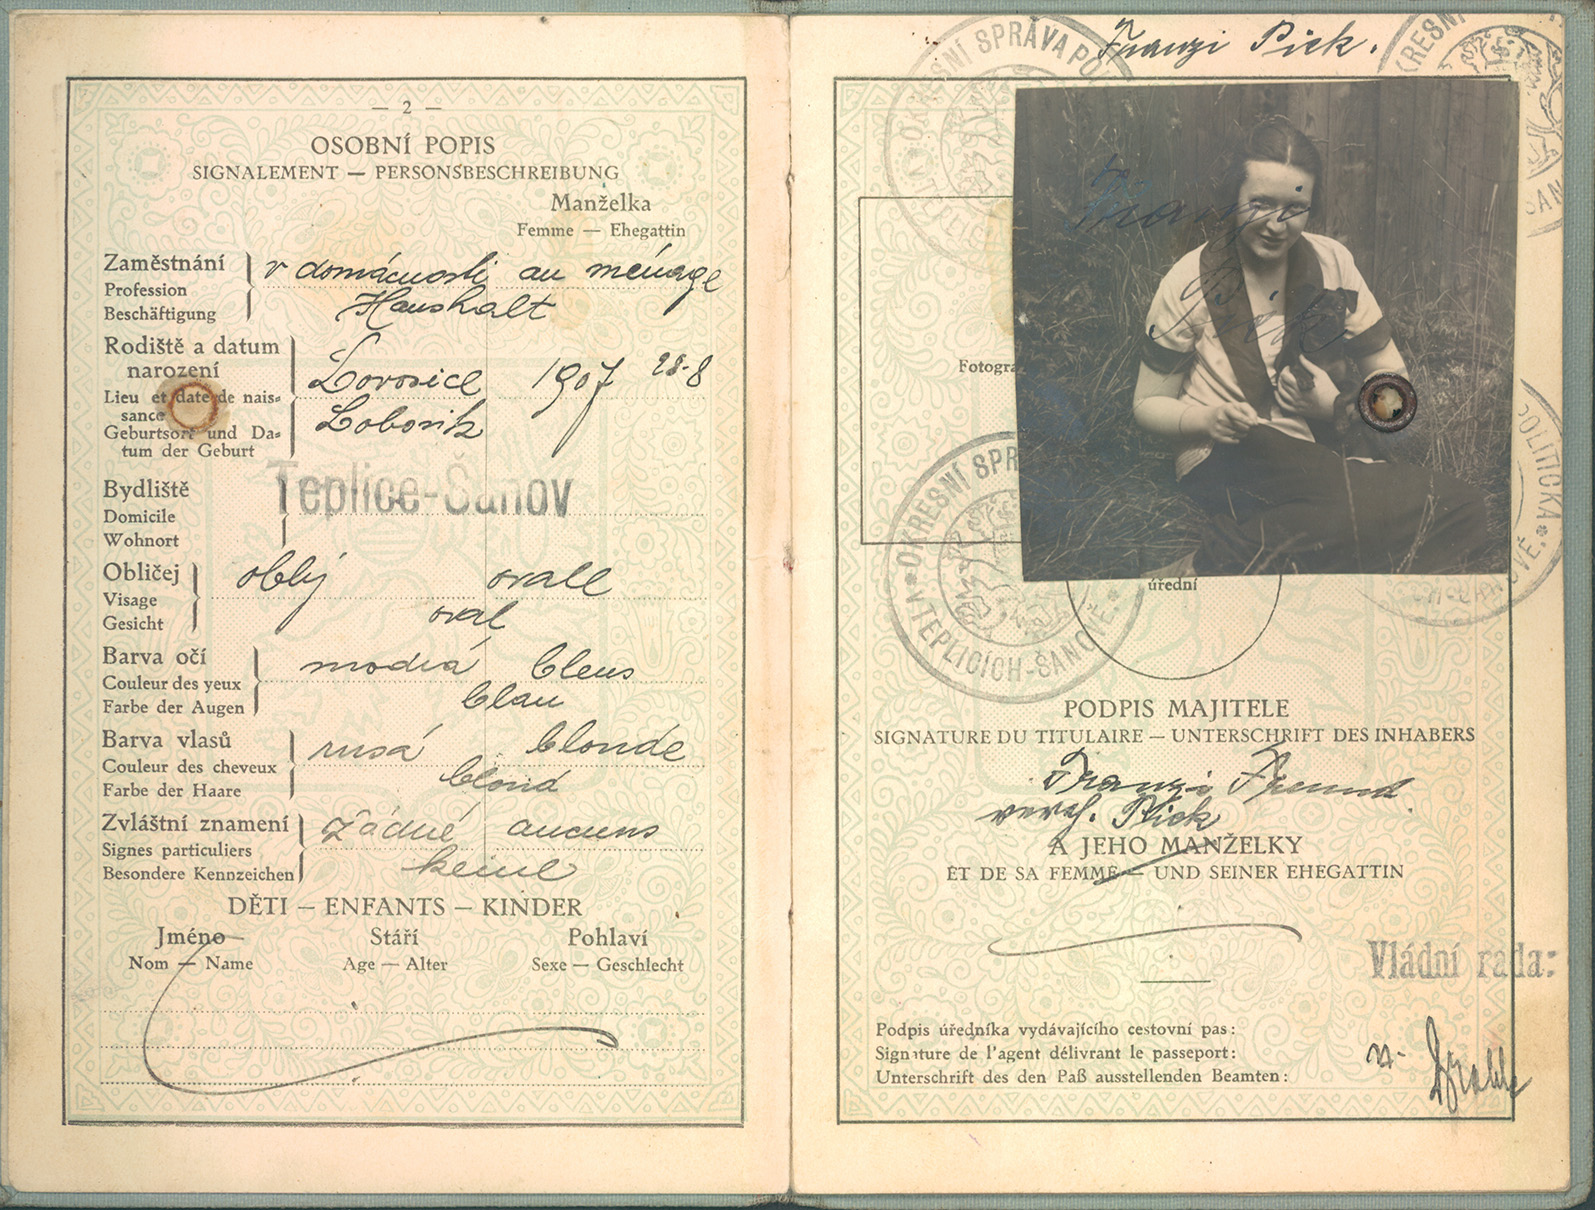 — 2 —
OSOBNÍ POPIS
SIGNALEMENT — PERSONSBESCHREIBUNG
Manželka
Femme — Ehegattin
Zaměstnání
Profession
Beschäftigung
v domácnosti au ménage
Haushalt
Rodiště a datum
narození
Lieu et date de nais=
sance
Geburtsort und Da=
tum der Geburt
Lovosice 1907 28.8
Lobositz
Bydliště
Domicile
Wohnort
Teplice-Šanov
Obličej
Visage
Gesicht
oblý ovale
oval
Barva očí
Couleur des yeux
Farbe der Augen
modrá bleus
blau
Barva vlasů
Couleur des cheveux
Farbe der Haare
rusá blonde
blond
Zvláštní znamení
Signes particuliers
Besondere Kennzeichen
žádné aucuns
keine
DĚTI — ENFANTS — KINDER
Jméno Stáří Pohlaví
Nom — Name Age — Alter Sexe — Geschlecht
Franzi Pick.
OKRESNÍ SPRÁVA
Franzi
Pick
Fotogra
OKRESNÍ SPR
V TEPLICÍCH-ŠANOVĚ
POLITICKÁ
úřední
PODPIS MAJITELE
SIGNATURE DU TITULAIRE — UNTERSCHRIFT DES INHABERS
Franzi Freund
verh. Pick
A JEHO MANŽELKY
ET DE SA FEMME — UND SEINER EHEGATTIN
Vládní rada:
Podpis úředníka vydávajícího cestovní pas:
Signature de l'agent délivrant le passeport:
Unterschrift des den Paß ausstellenden Beamten: